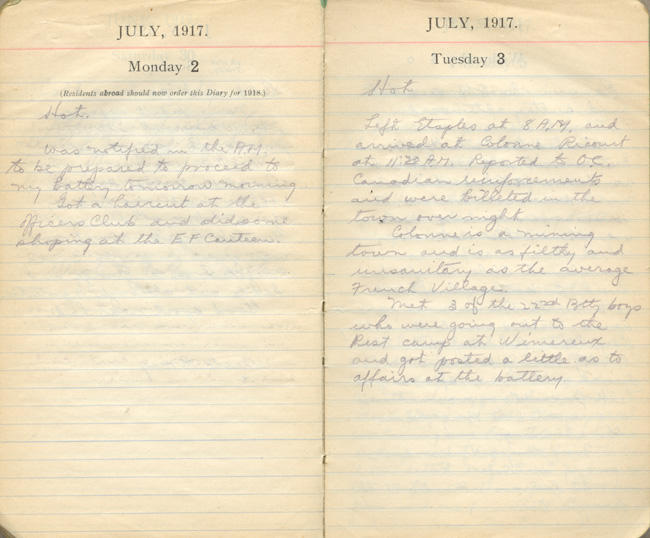 JULY, 1917.
Monday 2
(Residents abroad should now order this Diary for 1918.)
Hot.
Was notified in the A.M.
to be prepared to proceed to
my battery tomorrow morning
Got a haircut at the
Officers Club and did some
shoping at the E F Canteen.
JULY, 1917.
Tuesday 3
Hot
Left Etaples at 8 A.M. and
arrived at Colonne Ricourt
at 11:28 A.M. Reported to O.C.
Canadian reinforcements
and were billeted in the
town over night
Colonne is a mining
town and is as filthy and
unsanitary as the average
French Village.
Met 3 of the 22nd Btty boys
who were going out to the
Rest camp at Wimereux
and got posted a little as to
affairs at the battery.